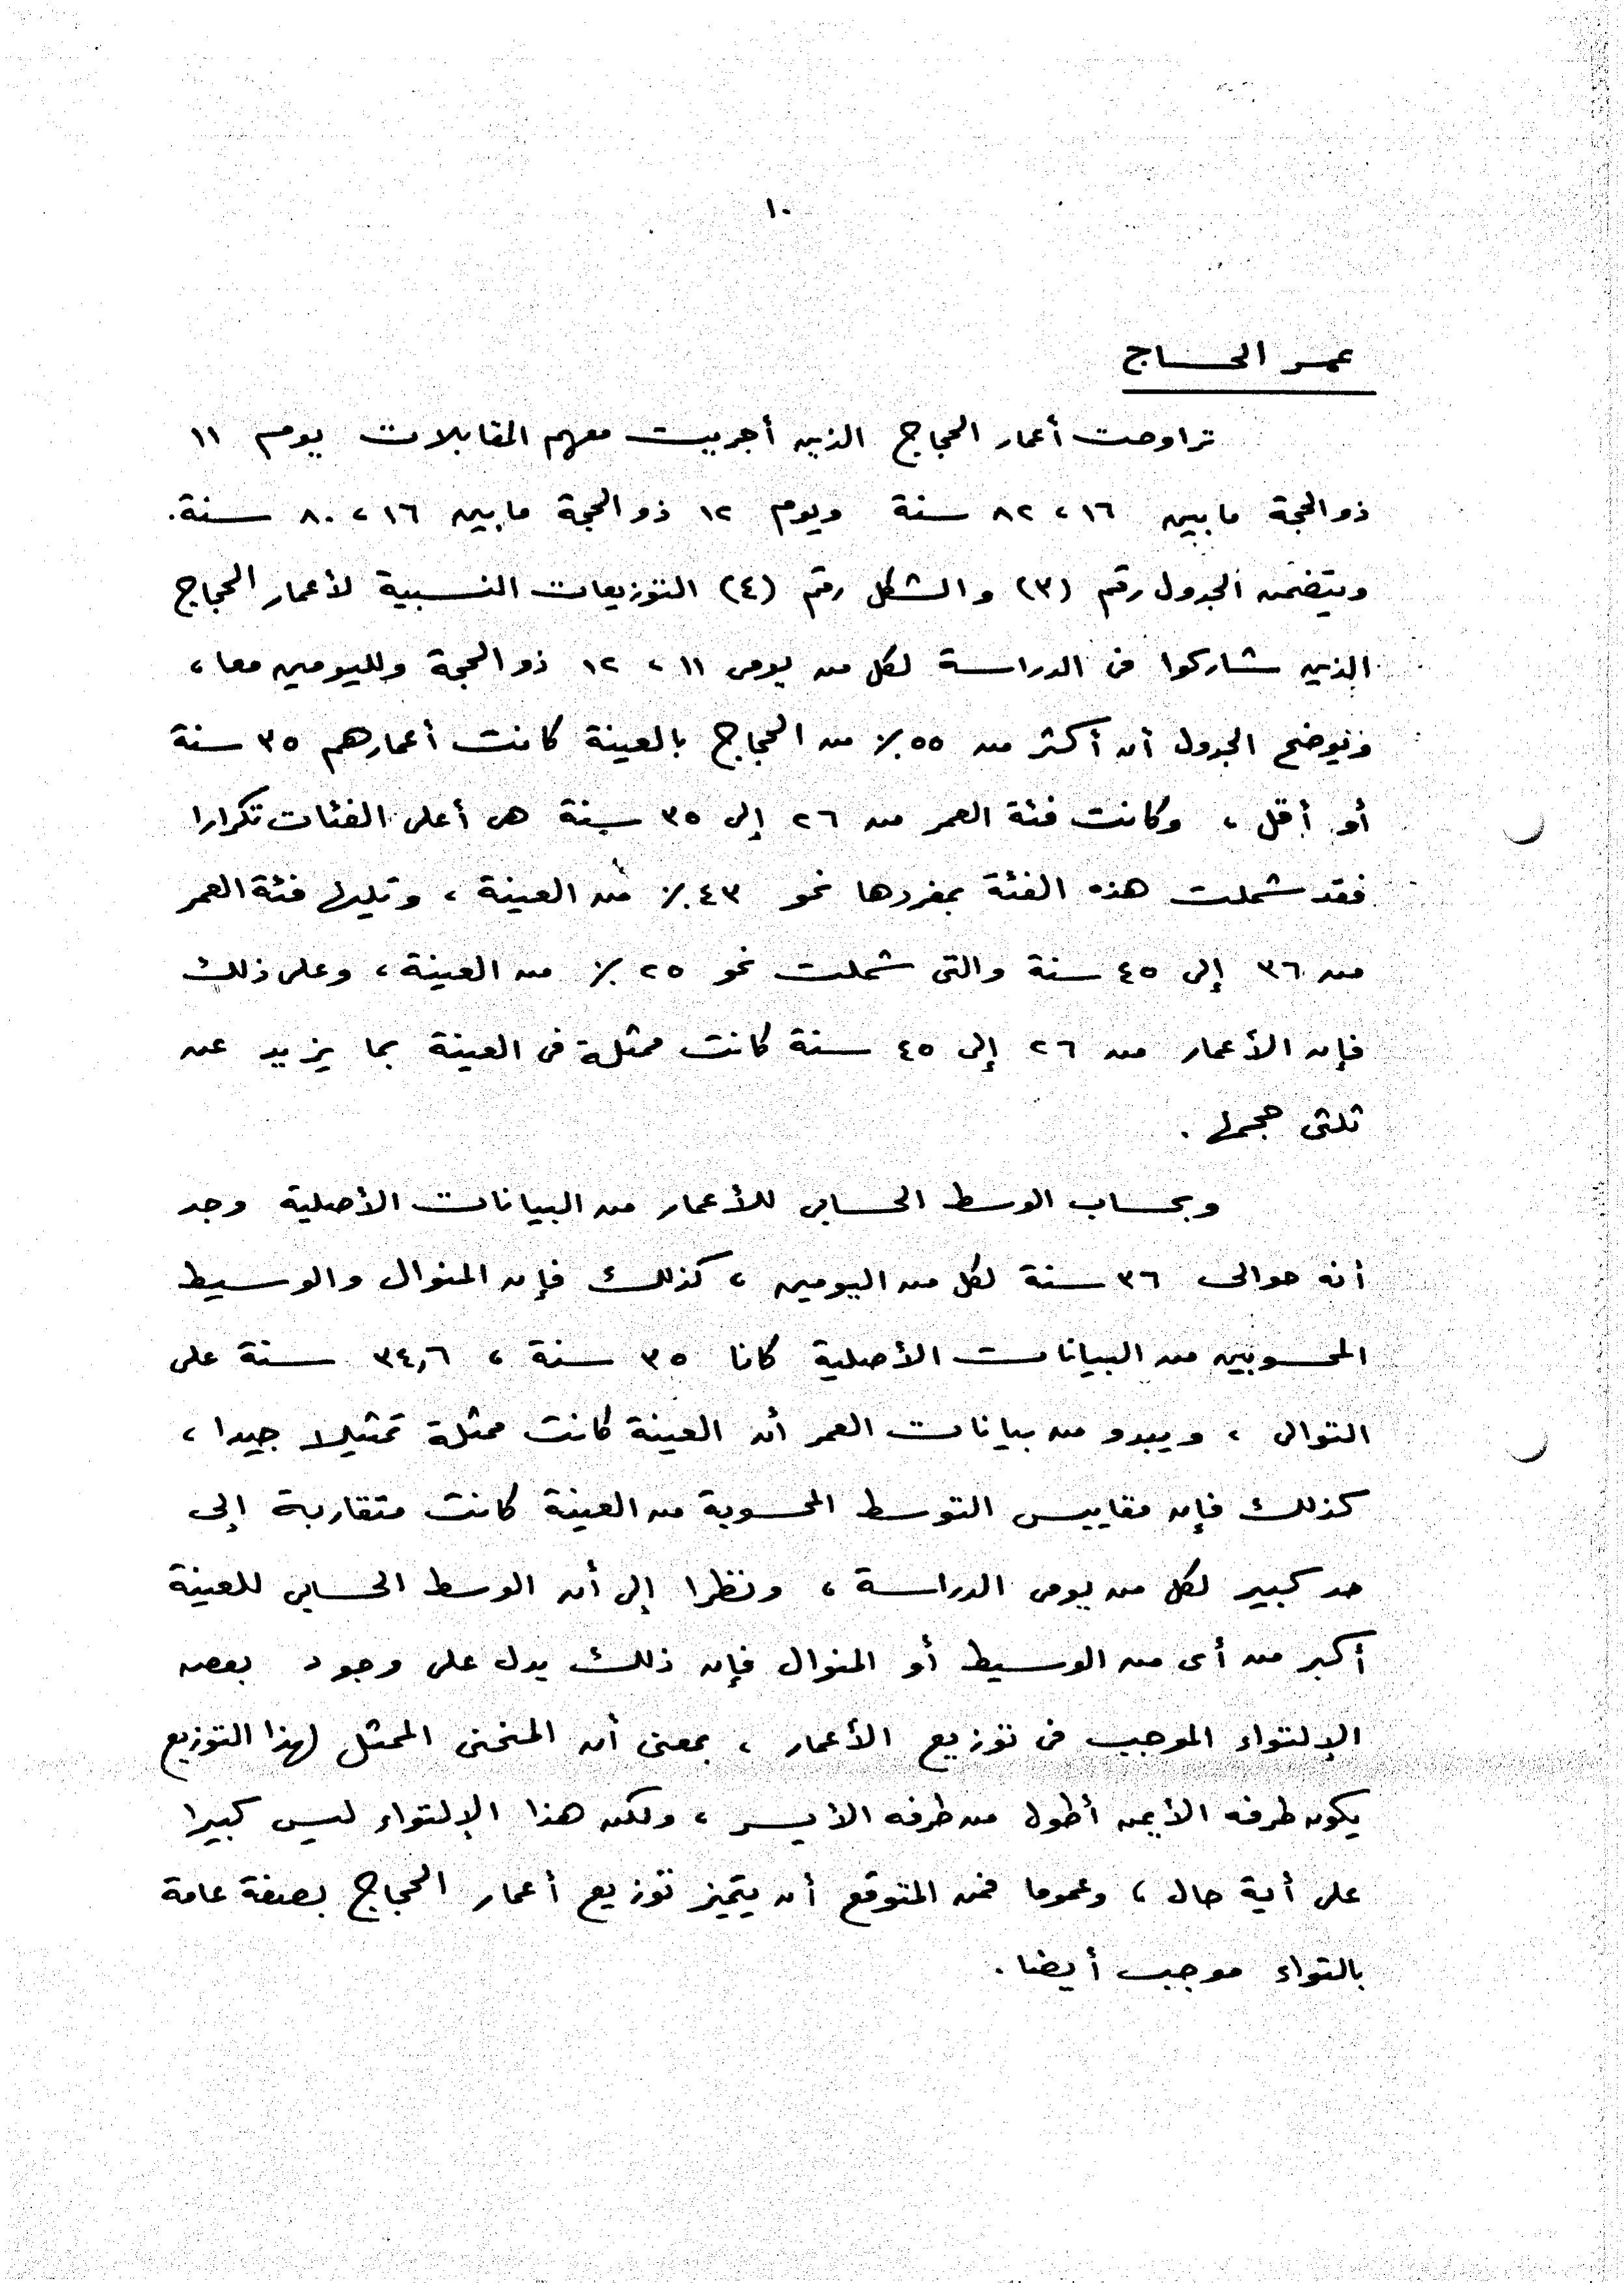 ١٠
عمر الحاج
تراوحت أعمار الحجاج الذين أجريت معهم المقابلات يوم ١١
ذو الحجة ما بين ١٦ ، ٨٢ سنة ويوم ١٢ ذو الحجة ما بين ١٦ ، ٨٠ سنة.
ويتضمن الجدول رقم (٣) والشكل رقم (٤) التوزيعات النسبية لأعمار الحجاج
الذين شاركوا فى الدراسة لكل من يومى ١١ ، ١٢ ذو الحجة ولليومين معا ،
ويوضح الجدول أن أكثر من ٥٥ ٪ من الحجاج بالعينة كانت أعمارهم ٣٥ سنة
أو أقل ، وكانت فئة العمر من ٢٦ إلى ٣٥ سنة هى أعلى الفئات تكرارا
فقد شملت هذه الفئة بمفردها نحو ٤٣ ٪ من العينة ، وتليها فئة العمر
من ٣٦ إلى ٤٥ سنة والتى شملت نحو ٢٥ ٪ من العينة ، وعلى ذلك
فإن الأعمار من ٢٦ إلى ٤٥ سنة كانت ممثلة فى العينة بما يزيد عن
ثلثى حجمها .
وبحساب الوسط الحسابى للأعمار من البيانات الأصلية وجد
أنه حوالى ٣٦ سنة لكل من اليومين ، كذلك فإن المنوال والوسيط
المحسوبين من البيانات الأصلية كانا ٣٥ سنة ، ٣٤,٦ سنة على
التوالى ، ويبدو من بيانات العمر أن العينة كانت ممثلة تمثيلا جيدا ،
كذلك فإن مقاييس التوسط المحسوبة من العينة كانت متقاربة إلى
حد كبير لكل من يومى الدراسة ، ونظرا إلى أن الوسط الحسابى للعينة
أكبر من أى من الوسيط أو المنوال فإن ذلك يدل على وجود بعض
الإلتواء الموجب فى توزيع الأعمار ، بمعنى أن المنحنى الممثل لهذا التوزيع
يكون طرفه الأيمن أطول من طرفه الأيسر ، ولكن هذا الإلتواء ليس كبيرا
على أية حال ، وعموما فمن المتوقع أن يتميز توزيع أعمار الحجاج بصفة عامة
بالتواء موجب أيضا .